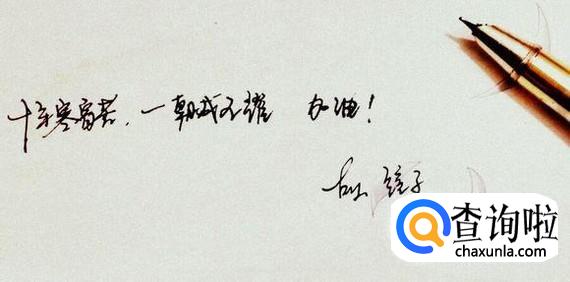 十年寒窗苦，一朝 耀 加油！
子
查询啦
chaxunla.com